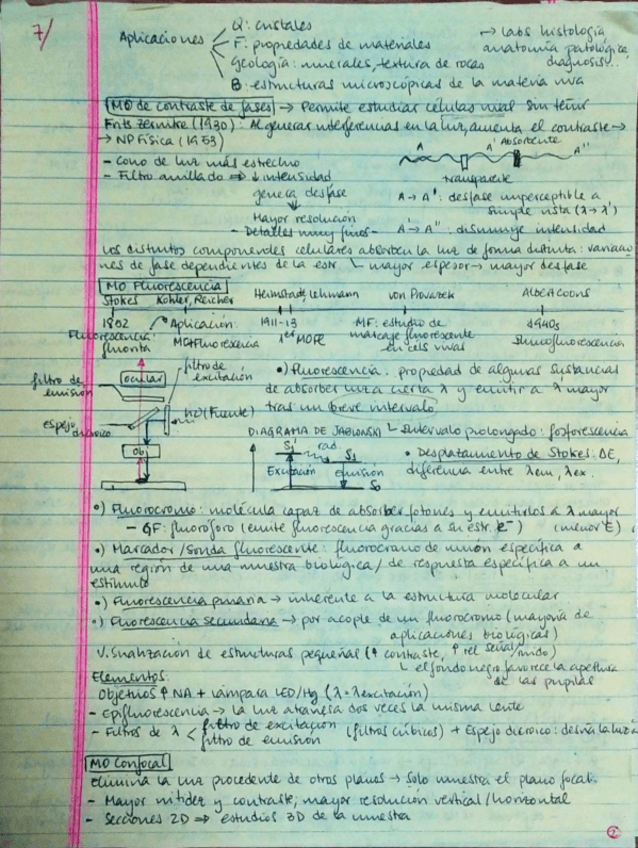 7/
Q: cristales
Aplicaciones F: propiedades de materiales → labs histología
Geología: minerales, textura de rocas anatomía patológica
diagnosis...
B: estructuras microscópicas de la materia viva
MO de contraste de fases → Permite estudiar células vivas sin teñir
Frits Zernike (1930): Al generar interferencias en la luz, aumenta el contraste →
→ NP Física (1953)
A A' Absorbente A''
- Cono de luz más estrecho
transparente
- Filtro anillado ⇒ ↓ intensidad
genera desfase A → A': desfase imperceptible a
↓ simple vista (λ → λ')
Mayor resolución
- Detalles muy finos - A' → A'': disminuye intensidad
Los distintos componentes celulares absorben la luz de forma distinta: variacio
nes de fase dependientes de la estr. mayor espesor → mayor desfase
MO Fluorescencia
Stokes Kohler, Reicher Heimstadt, Lehmann von Provazek Albert Coons
1852 Aplicación: 1911-13 MF: estudio de 1940s
Fluorescencia: MO Fluorescencia 1er MOFE marcaje fluorescente Inmunofluorescencia
fluorita en cels vivas
filtro de excitación
ocular
filtro de emisión
hν (Fuente)
espejo dicroico
Obj
•) Fluorescencia: propiedad de algunas sustancias
de absorber luz a cierta λ y emitir a λ mayor
tras un breve intervalo
DIAGRAMA DE JABLONSKI Intervalo prolongado: fosforescencia
S1' rad S1 • Desplazamiento de Stokes: ΔE,
Excitación emisión diferencia entre λem, λex.
S0
•) Fluorocromo: molécula capaz de absorber fotones y emitirlos a λ mayor
- GF: fluoróforo (emite fluorescencia gracias a su estr. e⁻) (menor E)
•) Marcador/Sonda fluorescente: fluorocromo de unión específica a
una región de una muestra biológica/ de respuesta específica a un
estímulo
•) Fluorescencia primaria → inherente a la estructura molecular
•) Fluorescencia secundaria → por acople de un fluorocromo (mayoría de
aplicaciones biológicas)
Visualización de estructuras pequeñas (↑ contraste, ↑ rel señal/ruido)
el fondo negro favorece la apertura
de las pupilas
Elementos:
Objetivos ↑ NA + lámpara LED/Hg (λ = λexcitación)
- Epifluorescencia → la luz atraviesa dos veces la misma lente
- Filtros de λ filtro de excitación (filtros cúbicos) + Espejo dicroico: desvía la luz
filtro de emisión
MO Confocal
Elimina la luz procedente de otros planos → Solo muestra el plano focal.
- Mayor nitidez y contraste; mayor resolución vertical/horizontal
- Secciones 2D ⇒ estudios 3D de la muestra